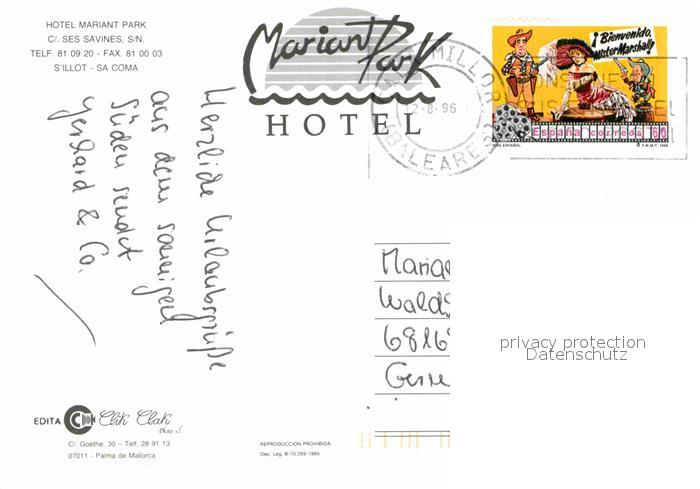 HOTEL MARIANT PARK
C/. SES SAVINES, S/N.
TELF. 81 09 20 - FAX. 81 00 03
S'ILLOT - SA COMA
Mariant Park
HOTEL
CALA MILLOR
12-8-96
(BALEARES)
¡Bienvenido,
Mister Marshall!
España correos 60
CINE ESPAÑOL
F.N.M.T. 1996
Herzliche Urlaubsgrüße
aus dem sonnigen
Süden sendet
Gerhard & Co.
Maria
Walds
6816
privacy protection
Datenschutz
EDITA CCOM Clik Clak
Photo s.l.
C/. Goethe, 30 – Telf. 28 91 13
07011 - Palma de Mallorca
REPRODUCCIÓN PROHIBIDA
Dep. Leg. B-10.269-1995